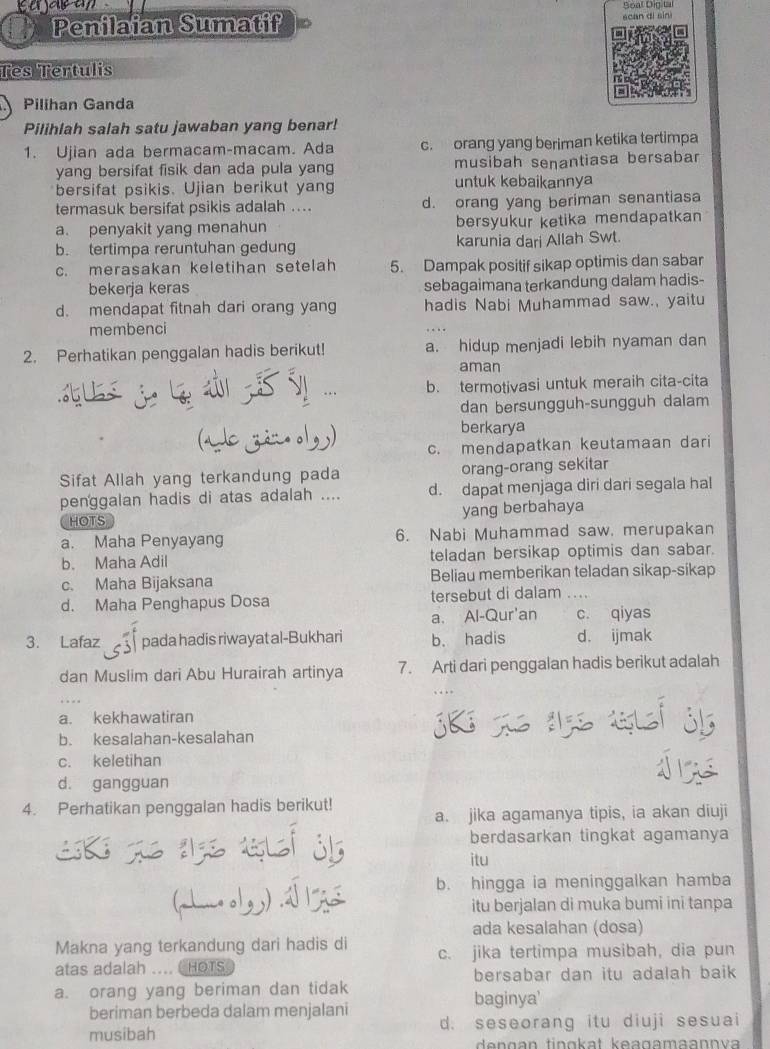 Soal Digital
scan di sini
Penilaian Sumatif
Tes Tertulis
Pilihan Ganda
Pilihlah salah satu jawaban yang benar!
1. Ujian ada bermacam-macam. Ada
yang bersifat fisik dan ada pula yang
bersifat psikis. Ujian berikut yang
termasuk bersifat psikis adalah ....
a. penyakit yang menahun
b. tertimpa reruntuhan gedung
c. merasakan keletihan setelah
bekerja keras
d. mendapat fitnah dari orang yang
membenci
2. Perhatikan penggalan hadis berikut!
... إِلَّا كَفَّرَ اللهُ بِهَا مِنْ خَطَايَاهُ.
(رواه متفق عليه)
Sifat Allah yang terkandung pada
penggalan hadis di atas adalah ....
HOTS
a. Maha Penyayang
b. Maha Adil
c. Maha Bijaksana
d. Maha Penghapus Dosa
3. Lafaz أَذًى pada hadis riwayat al-Bukhari
dan Muslim dari Abu Hurairah artinya
....
a. kekhawatiran
b. kesalahan-kesalahan
c. keletihan
d. gangguan
4. Perhatikan penggalan hadis berikut!
وَإِنْ أَصَابَتْهُ ضَرَّاءُ صَبَرَ فَكَانَتْ
خَيْرًا لَهُ. (رواه مسلم)
Makna yang terkandung dari hadis di
atas adalah .... HOTS
a. orang yang beriman dan tidak
beriman berbeda dalam menjalani
musibah
c. orang yang beriman ketika tertimpa
musibah senantiasa bersabar
untuk kebaikannya
d. orang yang beriman senantiasa
bersyukur ketika mendapatkan
karunia dari Allah Swt.
5. Dampak positif sikap optimis dan sabar
sebagaimana terkandung dalam hadis-
hadis Nabi Muhammad saw., yaitu
....
a. hidup menjadi lebih nyaman dan
aman
b. termotivasi untuk meraih cita-cita
dan bersungguh-sungguh dalam
berkarya
c. mendapatkan keutamaan dari
orang-orang sekitar
d. dapat menjaga diri dari segala hal
yang berbahaya
6. Nabi Muhammad saw. merupakan
teladan bersikap optimis dan sabar.
Beliau memberikan teladan sikap-sikap
tersebut di dalam ....
a. Al-Qur'an c. qiyas
b. hadis d. ijmak
7. Arti dari penggalan hadis berikut adalah
....
وَإِنْ أَصَابَتْهُ ضَرَّاءُ صَبَرَ فَكَانَ
خَيْرًا لَهُ
a. jika agamanya tipis, ia akan diuji
berdasarkan tingkat agamanya
itu
b. hingga ia meninggalkan hamba
itu berjalan di muka bumi ini tanpa
ada kesalahan (dosa)
c. jika tertimpa musibah, dia pun
bersabar dan itu adalah baik
baginya'
d. seseorang itu diuji sesuai
dengan tingkat keagamaannya